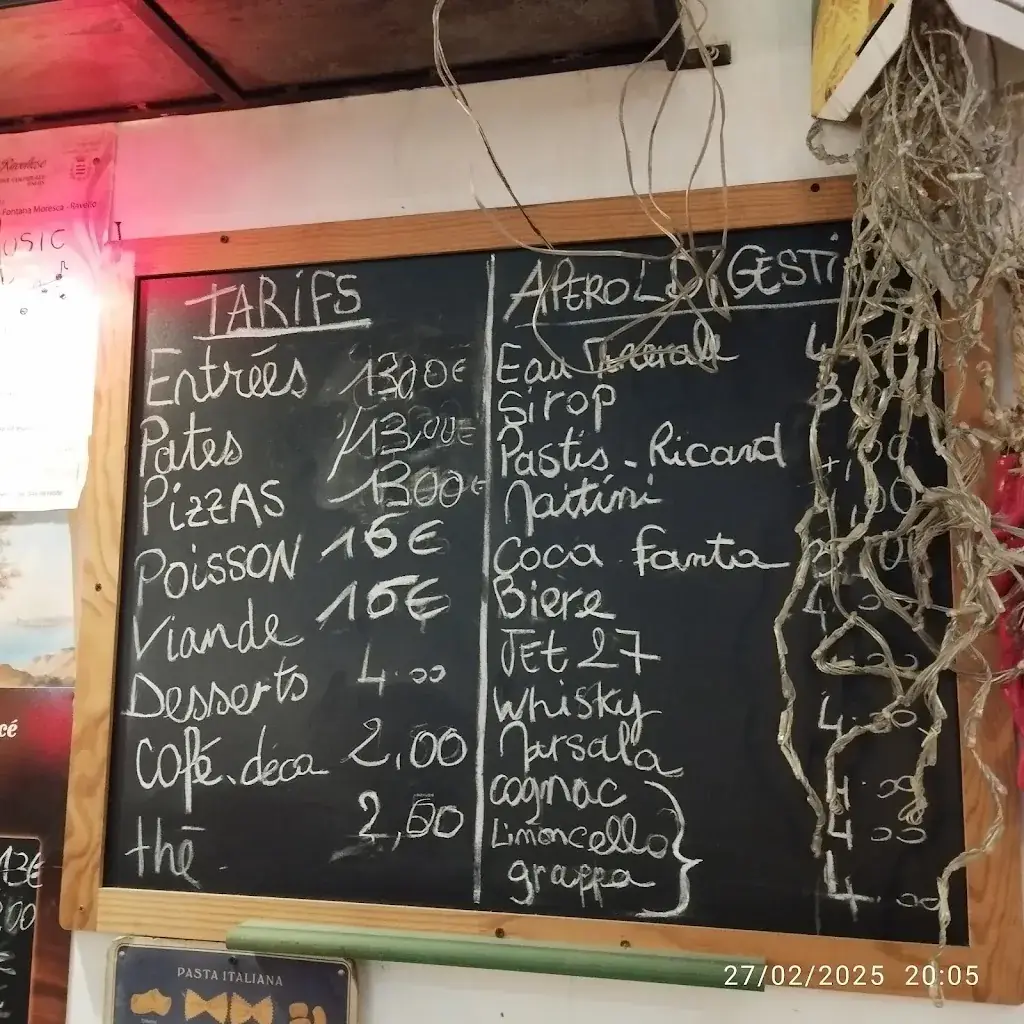 Fontana Moresca - Ravello
USIC
TARIFS
Entrées 13,00€
Pates 13.00€
PizzAS 1300€
POISSON 16€
Viande 16€
Desserts 4.00
Café. déca 2,00
thé 2,50
APERO DIGESTI
Eau 4
Sirop 3
Pastis - Ricard
Martini
Coca Fanta
Biere 4.00
JEt 27
Whisky 4.00
Marsala
cognac 4.00
Limoncello 4.00
grappa 4.00
cé
13€
00
PASTA ITALIANA
27/02/2025 20:05